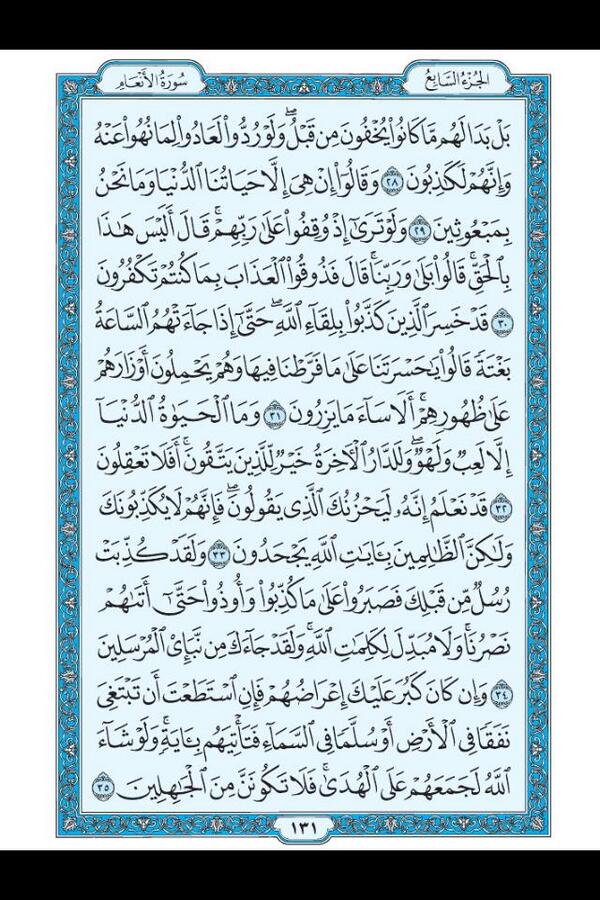 الجزء السابع
سورة الأنعام
بَلْ بَدَا لَهُم مَّا كَانُوا۟ يُخْفُونَ مِن قَبْلُ ۖ وَلَوْ رُدُّوا۟ لَعَادُوا۟ لِمَا نُهُوا۟ عَنْهُ
وَإِنَّهُمْ لَكَـٰذِبُونَ ٢٨ وَقَالُوٓا۟ إِنْ هِىَ إِلَّا حَيَاتُنَا ٱلدُّنْيَا وَمَا نَحْنُ
بِمَبْعُوثِينَ ٢٩ وَلَوْ تَرَىٰٓ إِذْ وُقِفُوا۟ عَلَىٰ رَبِّهِمْ ۚ قَالَ أَلَيْسَ هَـٰذَا
بِٱلْحَقِّ ۚ قَالُوا۟ بَلَىٰ وَرَبِّنَا ۚ قَالَ فَذُوقُوا۟ ٱلْعَذَابَ بِمَا كُنتُمْ تَكْفُرُونَ
٣٠ قَدْ خَسِرَ ٱلَّذِينَ كَذَّبُوا۟ بِلِقَآءِ ٱللَّهِ ۖ حَتَّىٰٓ إِذَا جَآءَتْهُمُ ٱلسَّاعَةُ
بَغْتَةً قَالُوا۟ يَـٰحَسْرَتَنَا عَلَىٰ مَا فَرَّطْنَا فِيهَا وَهُمْ يَحْمِلُونَ أَوْزَارَهُمْ
عَلَىٰ ظُهُورِهِمْ ۚ أَلَا سَآءَ مَا يَزِرُونَ ٣١ وَمَا ٱلْحَيَوٰةُ ٱلدُّنْيَآ
إِلَّا لَعِبٌ وَلَهْوٌ ۖ وَلَلدَّارُ ٱلْـَٔاخِرَةُ خَيْرٌ لِّلَّذِينَ يَتَّقُونَ ۗ أَفَلَا تَعْقِلُونَ
٣٢ قَدْ نَعْلَمُ إِنَّهُۥ لَيَحْزُنُكَ ٱلَّذِى يَقُولُونَ ۖ فَإِنَّهُمْ لَا يُكَذِّبُونَكَ
وَلَـٰكِنَّ ٱلظَّـٰلِمِينَ بِـَٔايَـٰتِ ٱللَّهِ يَجْحَدُونَ ٣٣ وَلَقَدْ كُذِّبَتْ
رُسُلٌ مِّن قَبْلِكَ فَصَبَرُوا۟ عَلَىٰ مَا كُذِّبُوا۟ وَأُوذُوا۟ حَتَّىٰٓ أَتَىٰهُمْ
نَصْرُنَا ۚ وَلَا مُبَدِّلَ لِكَلِمَـٰتِ ٱللَّهِ ۚ وَلَقَدْ جَآءَكَ مِن نَّبَإِى۟ ٱلْمُرْسَلِينَ
٣٤ وَإِن كَانَ كَبُرَ عَلَيْكَ إِعْرَاضُهُمْ فَإِنِ ٱسْتَطَعْتَ أَن تَبْتَغِىَ
نَفَقًا فِى ٱلْأَرْضِ أَوْ سُلَّمًا فِى ٱلسَّمَآءِ فَتَأْتِيَهُم بِـَٔايَةٍ ۚ وَلَوْ شَآءَ
ٱللَّهُ لَجَمَعَهُمْ عَلَى ٱلْهُدَىٰ ۚ فَلَا تَكُونَنَّ مِنَ ٱلْجَـٰهِلِينَ ٣٥
١٣١